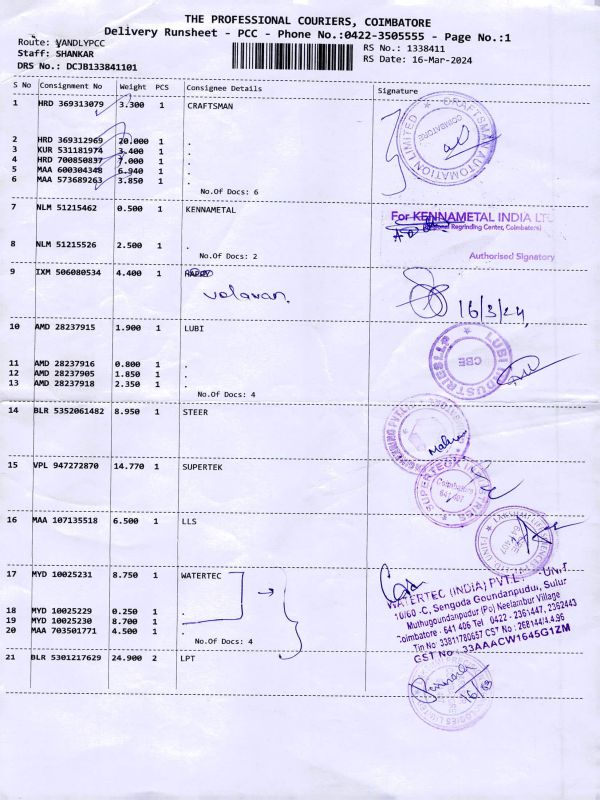 THE PROFESSIONAL COURIERS, COIMBATORE
Delivery Runsheet - PCC - Phone No.:0422-3505555 - Page No.:1
Route: VANDLYPCC
Staff: SHANKAR
DRS No.: DCJB133841101
RS No.: 1338411
RS Date: 16-Mar-2024
S No Consignment No Weight PCS Consignee Details Signature
1 HRD 369313079 3.300 1 CRAFTSMAN
2 HRD 369312969 20.000 1 .
3 KUR 531181974 3.400 1 .
4 HRD 700850837 7.000 1 .
5 MAA 600304348 6.940 1 .
6 MAA 573689263 3.850 1 .
No.Of Docs: 6
AUTOMATION LIMITED
COIMBATORE
7 NLM 51215462 0.500 1 KENNAMETAL
8 NLM 51215526 2.500 1 .
No.Of Docs: 2
For KENNAMETAL INDIA LT
Regrinding Center, Coimbatore)
Authorised Signatory
9 IXM 506080534 4.400 1
valavan.
16/3/24,
10 AMD 28237915 1.900 1 LUBI
11 AMD 28237916 0.800 1 .
12 AMD 28237905 1.850 1 .
13 AMD 28237918 2.350 1 .
No.Of Docs: 4
LUBI INDUSTRIES LLP
CBE
14 BLR 5352061482 8.950 1 STEER
15 VPL 947272870 14.770 1 SUPERTEK
Coimbatore
641 407
16 MAA 107135518 6.500 1 LLS
17 MYD 10025231 8.750 1 WATERTEC
18 MYD 10025229 0.250 1 .
19 MYD 10025230 8.700 1 .
20 MAA 703501771 4.500 1 .
No.Of Docs: 4
WATERTEC (INDIA) PVT L UNIT
10/60 -C, Sengoda Goundanpudur, Sulur
Muthugoundanpudur (Po) Neelambur Village
Coimbatore - 641 406 Tel 0422 - 2361447, 2362443
Tin No: 33811780657 CST No : 268144/4.4.96
GST No : 33AAACW1645G1ZM
21 BLR 5301217629 24.900 2 LPT
16/03